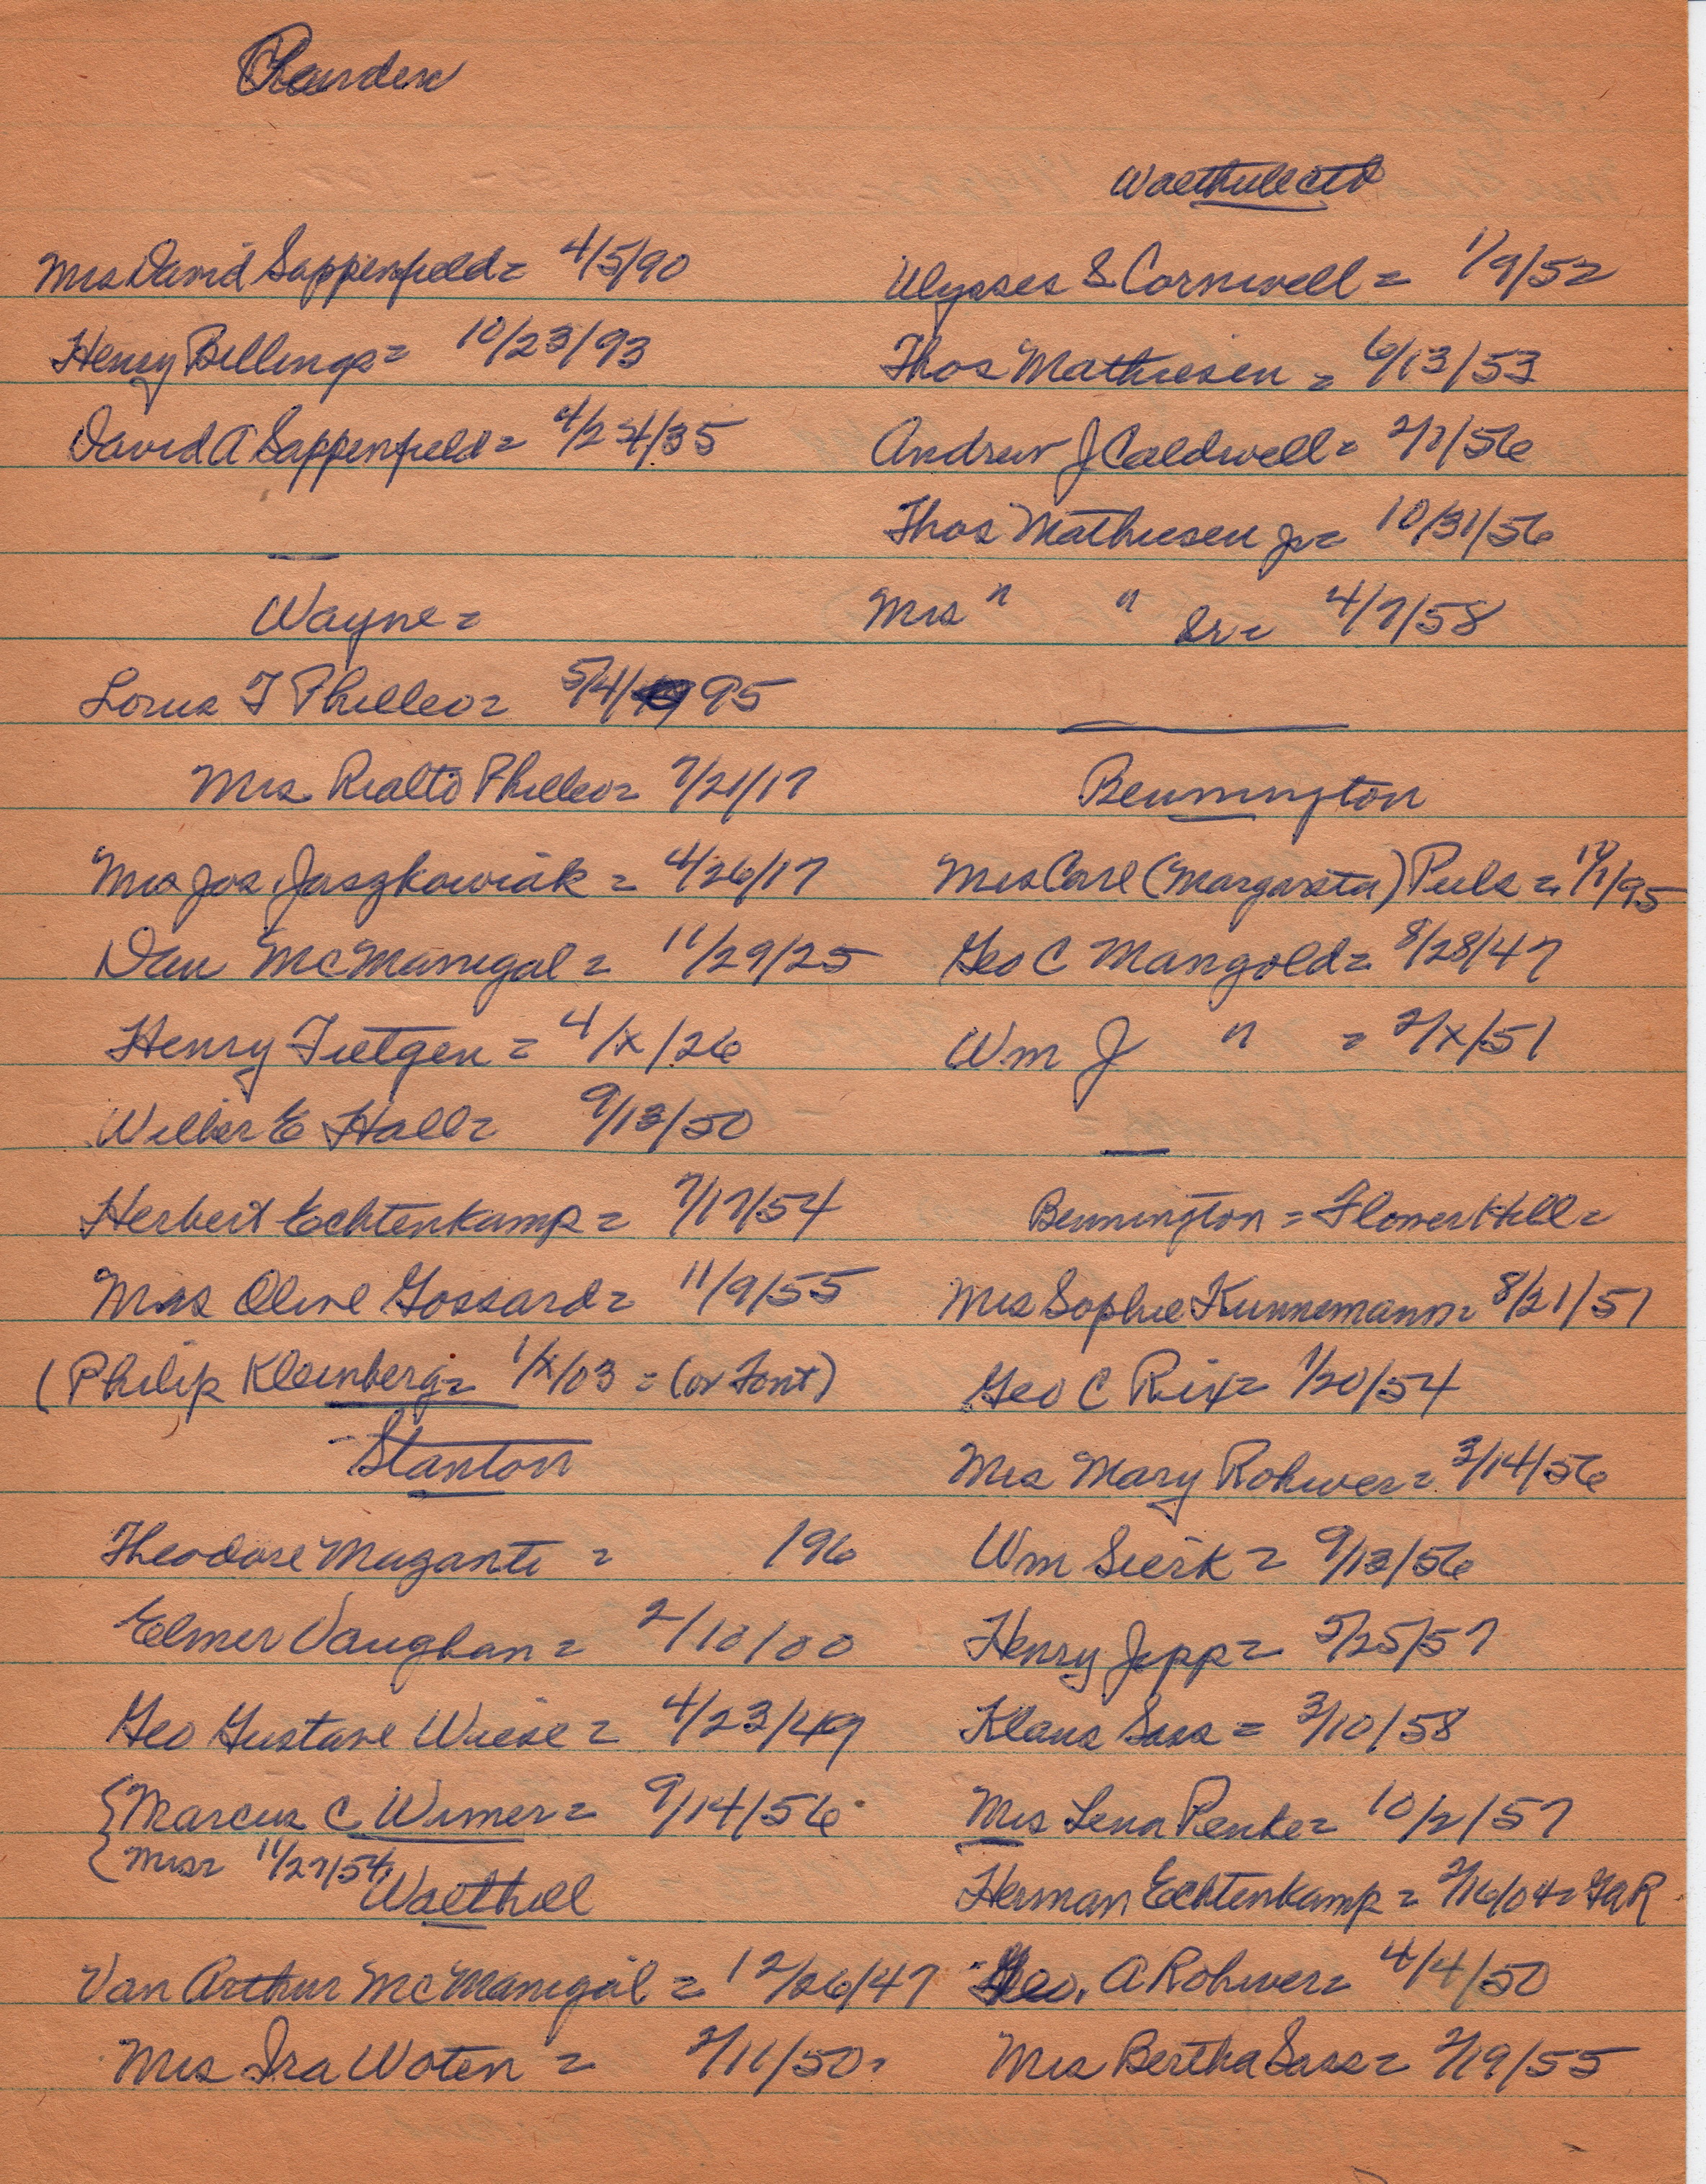 Mrs David Sappenfield = 4/5/90
Henry Billings = 10/23/93
David A Sappenfield = 4/24/35
Wayne =
Lorus T Philleo = 5/4/95
Mrs Rialto Philleo = 7/21/17
Mrs Jos Jaszkowiak = 4/26/17
Dan McManigal = 11/29/25
Henry Tietgen = 4/x/26
Wilber E Hall = 9/13/50
Herbert Echtenkamp = 7/17/54
Mrs Olive Gossard = 11/9/55
(Philip Kleinberg = 1/x/03 = (or Font)
Stanton
Theodore Muganti = 196
Elmer Vaughan = 2/10/00
Geo Gustave Wiese = 4/23/49
{ Marcus C Wimer = 9/14/56
{ Mrs = 11/27/54
Walthill
Van Arthur McManigal = 12/26/47
Mrs Ira Woten = 2/11/50 =
Walthill ctd
Ulysses S Cornwell = 1/9/52
Thos Mathiesen = 6/13/53
Andrew J Caldwell = 2/7/56
Thos Mathiesen Jr = 10/31/56
Mrs " " Sr = 4/7/58
Bennington
Mrs Carl (Margareta) Puls = 11/1/95
Geo C Mangold = 8/28/47
Wm J " = 2/x/51
Bennington = Flower Hill =
Mrs Sophie Kunnemann = 8/21/51
Geo C Rix = 1/20/54
Mrs Mary Rohwer = 3/14/56
Wm Sierk = 9/13/56
Henry Jepp = 5/25/57
Klaus Sass = 3/10/58
Mrs Lena Penke = 10/2/57
Herman Echtenkamp = 2/16/04 = GAR
Geo. A Rohwer = 4/4/50
Mrs Bertha Sass = 2/19/55